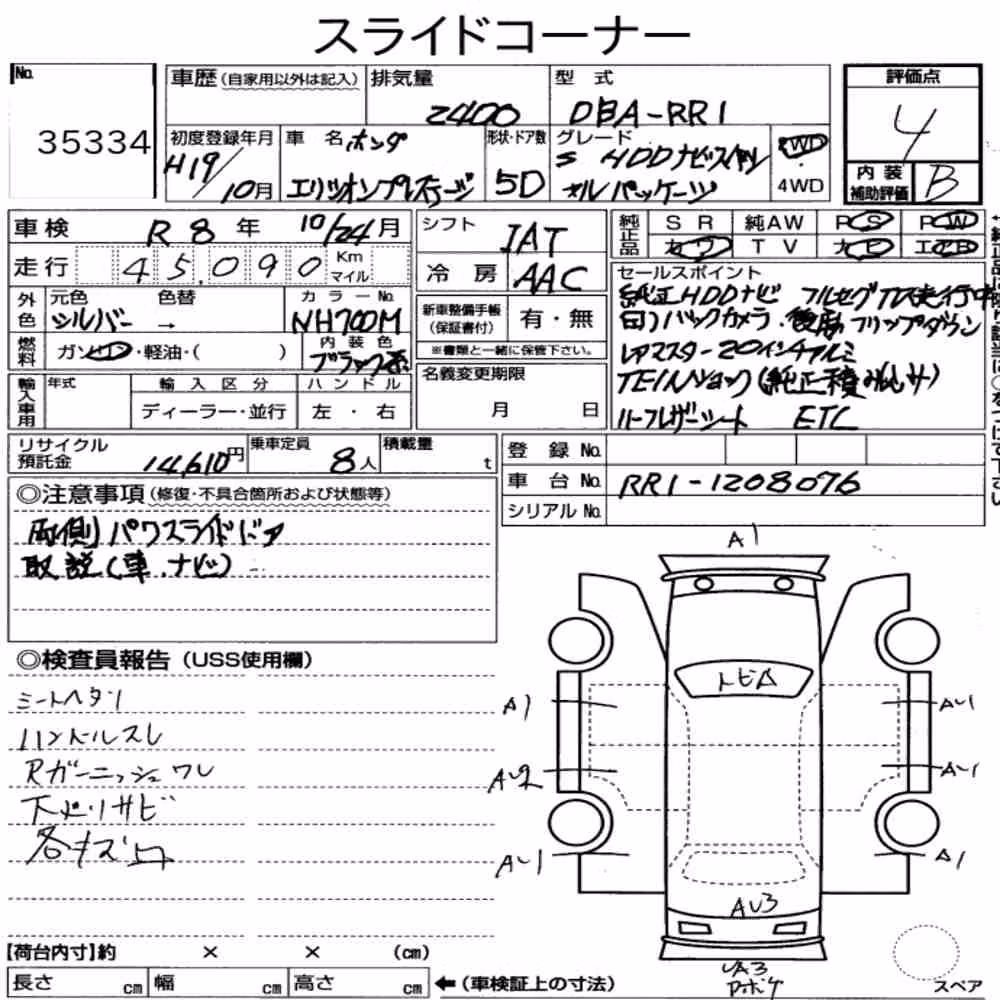 スライドコーナー
No.
35334
車歴(自家用以外は記入)
排気量
2400
型 式
DBA-RR1
初度登録年月
H19/10月
車 名
ホンダ
エリシオンプレステージ
形状・ドア数
5D
グレード
S HDDナビスペシャル
パッケージ
FWD
・
4WD
評価点
4
内 装
補助評価
B
車検
R8年 10/24月
走行
45,090
Km
マイル
外色
元色
シルバー
色替
→
カラーNo.
NH700M
燃料
ガソリン・軽油・( )
内 装 色
ブラック系
輸入車用
年式
輸 入 区 分
ディーラー・並行
ハ ン ド ル
左 ・ 右
シフト
IAT
冷 房
AAC
新車整備手帳
(保証書付)
有・無
※書類と一緒に保管下さい。
名義変更期限
月 日
純正品
S R
純AW
P S
P W
カ ワ
T V
ナ ビ
エアB
セールスポイント
純正HDDナビ フルセグTV走行中
バックカメラ・後席フリップダウン
20インチアルミ
TEINショック(純正積みなし)
ハーフレザーシート ETC
リサイクル
預託金
14,610円
乗車定員
8人
積載量
t
登 録 No.
車 台 No.
RR1-1208076
シリアル No.
◎注意事項(修復・不具合箇所および状態等)
両側パワスライドドア
取説(車.ナビ)
◎検査員報告(USS使用欄)
シートヘタリ
ハンドルスレ
Rガーニッシュワレ
下廻りサビ
各キズ凹
A1
トビA
A1
AU1
AU2
AU1
AU1
A1
AU3
UA3
スペア
【荷台内寸】約 × × (cm)
長さ cm
幅 cm
高さ cm
←(車検証上の寸法)